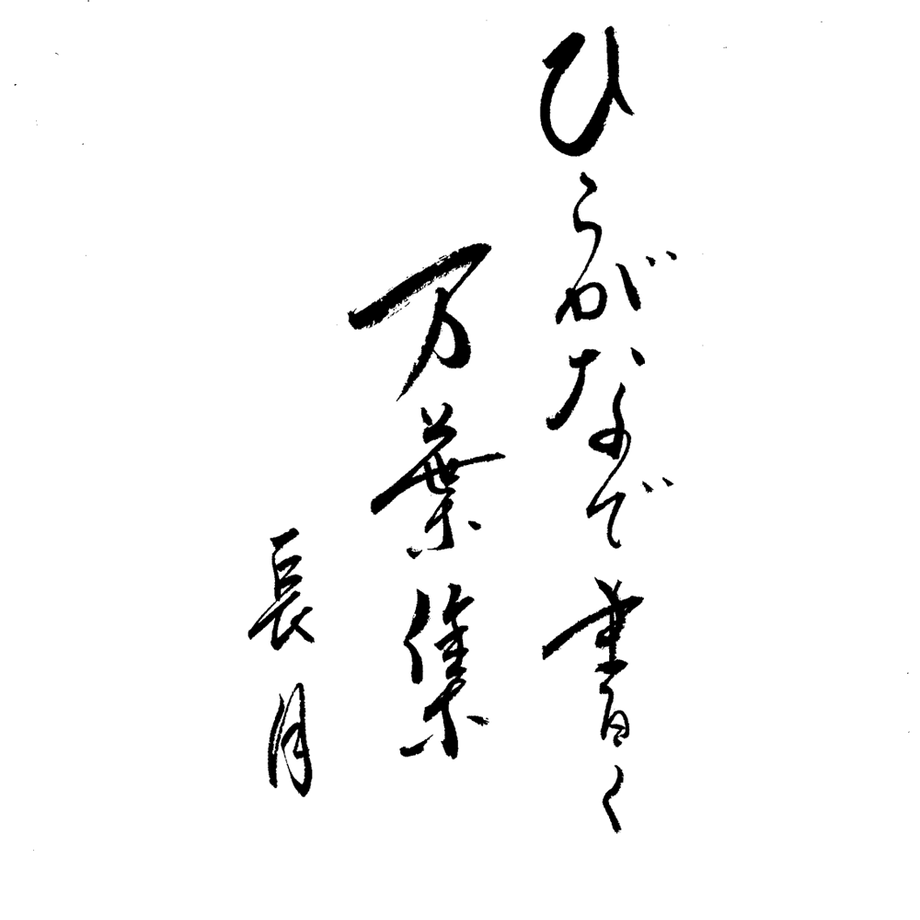 ひらがなで書く
万葉集
長月